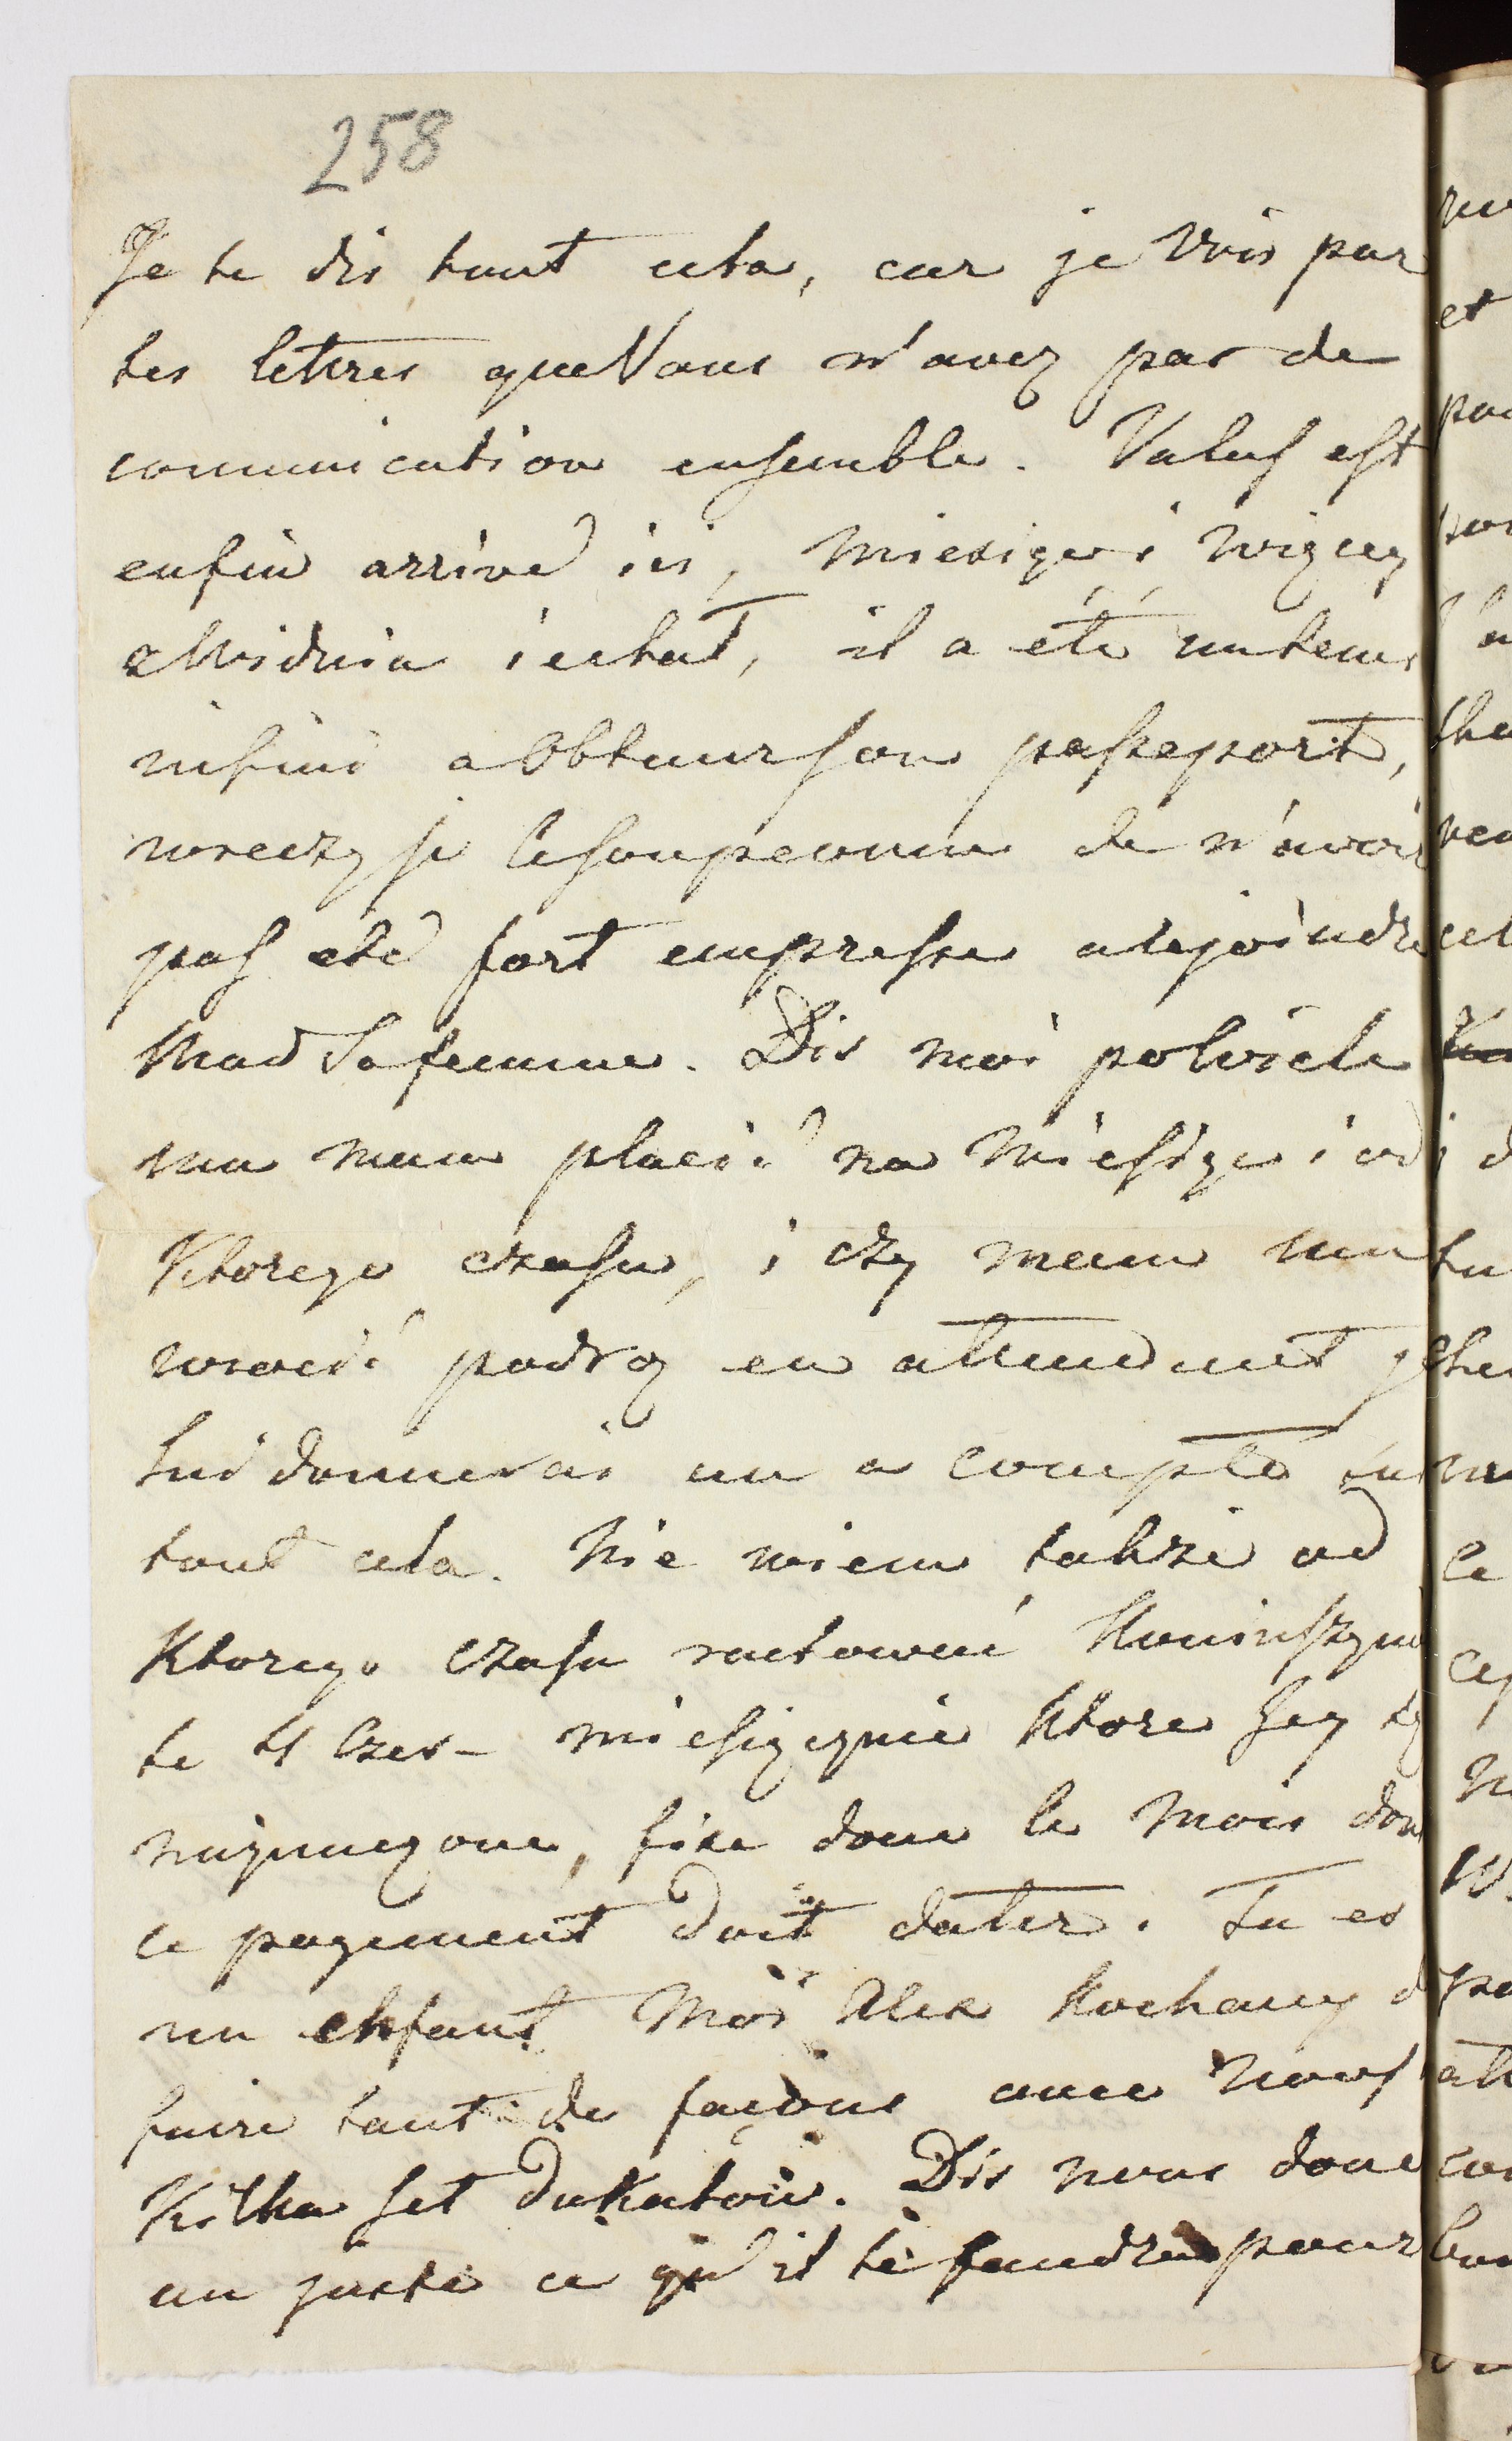 258
Je te dis tout cela, car je vois par
tes lettres que Vous n'avez pas de
communication ensemble. Valus est
enfin arrivé ici, miesięc i więcey
z Widnia iechał, il a été un tems
infini a Obtenir son passeport,
wreczy je le soupconne de n'avoir
pas eté fort empressé a rejoindre
Mad Sa femme. Dis moi poki ile
mu mam placić na Miesiąc i od
Ktorego czasu, i czy mam mu
wrocić podroz en attendant je
lui donnerai un a compte sur
tout cela. Nie wiem takze od
Ktorego Czasu rachować
te 4 Czer- miesięcznie Ktore Jey
wyznaczone, fixe donc le Mois dont
ce payement doit dater. Tu es
un enfant Moi Alex Kochany de
faire tant de façons avec nous
Kilka set dukatow. Dis nous donc
au juste ce qu'il te faudra pour